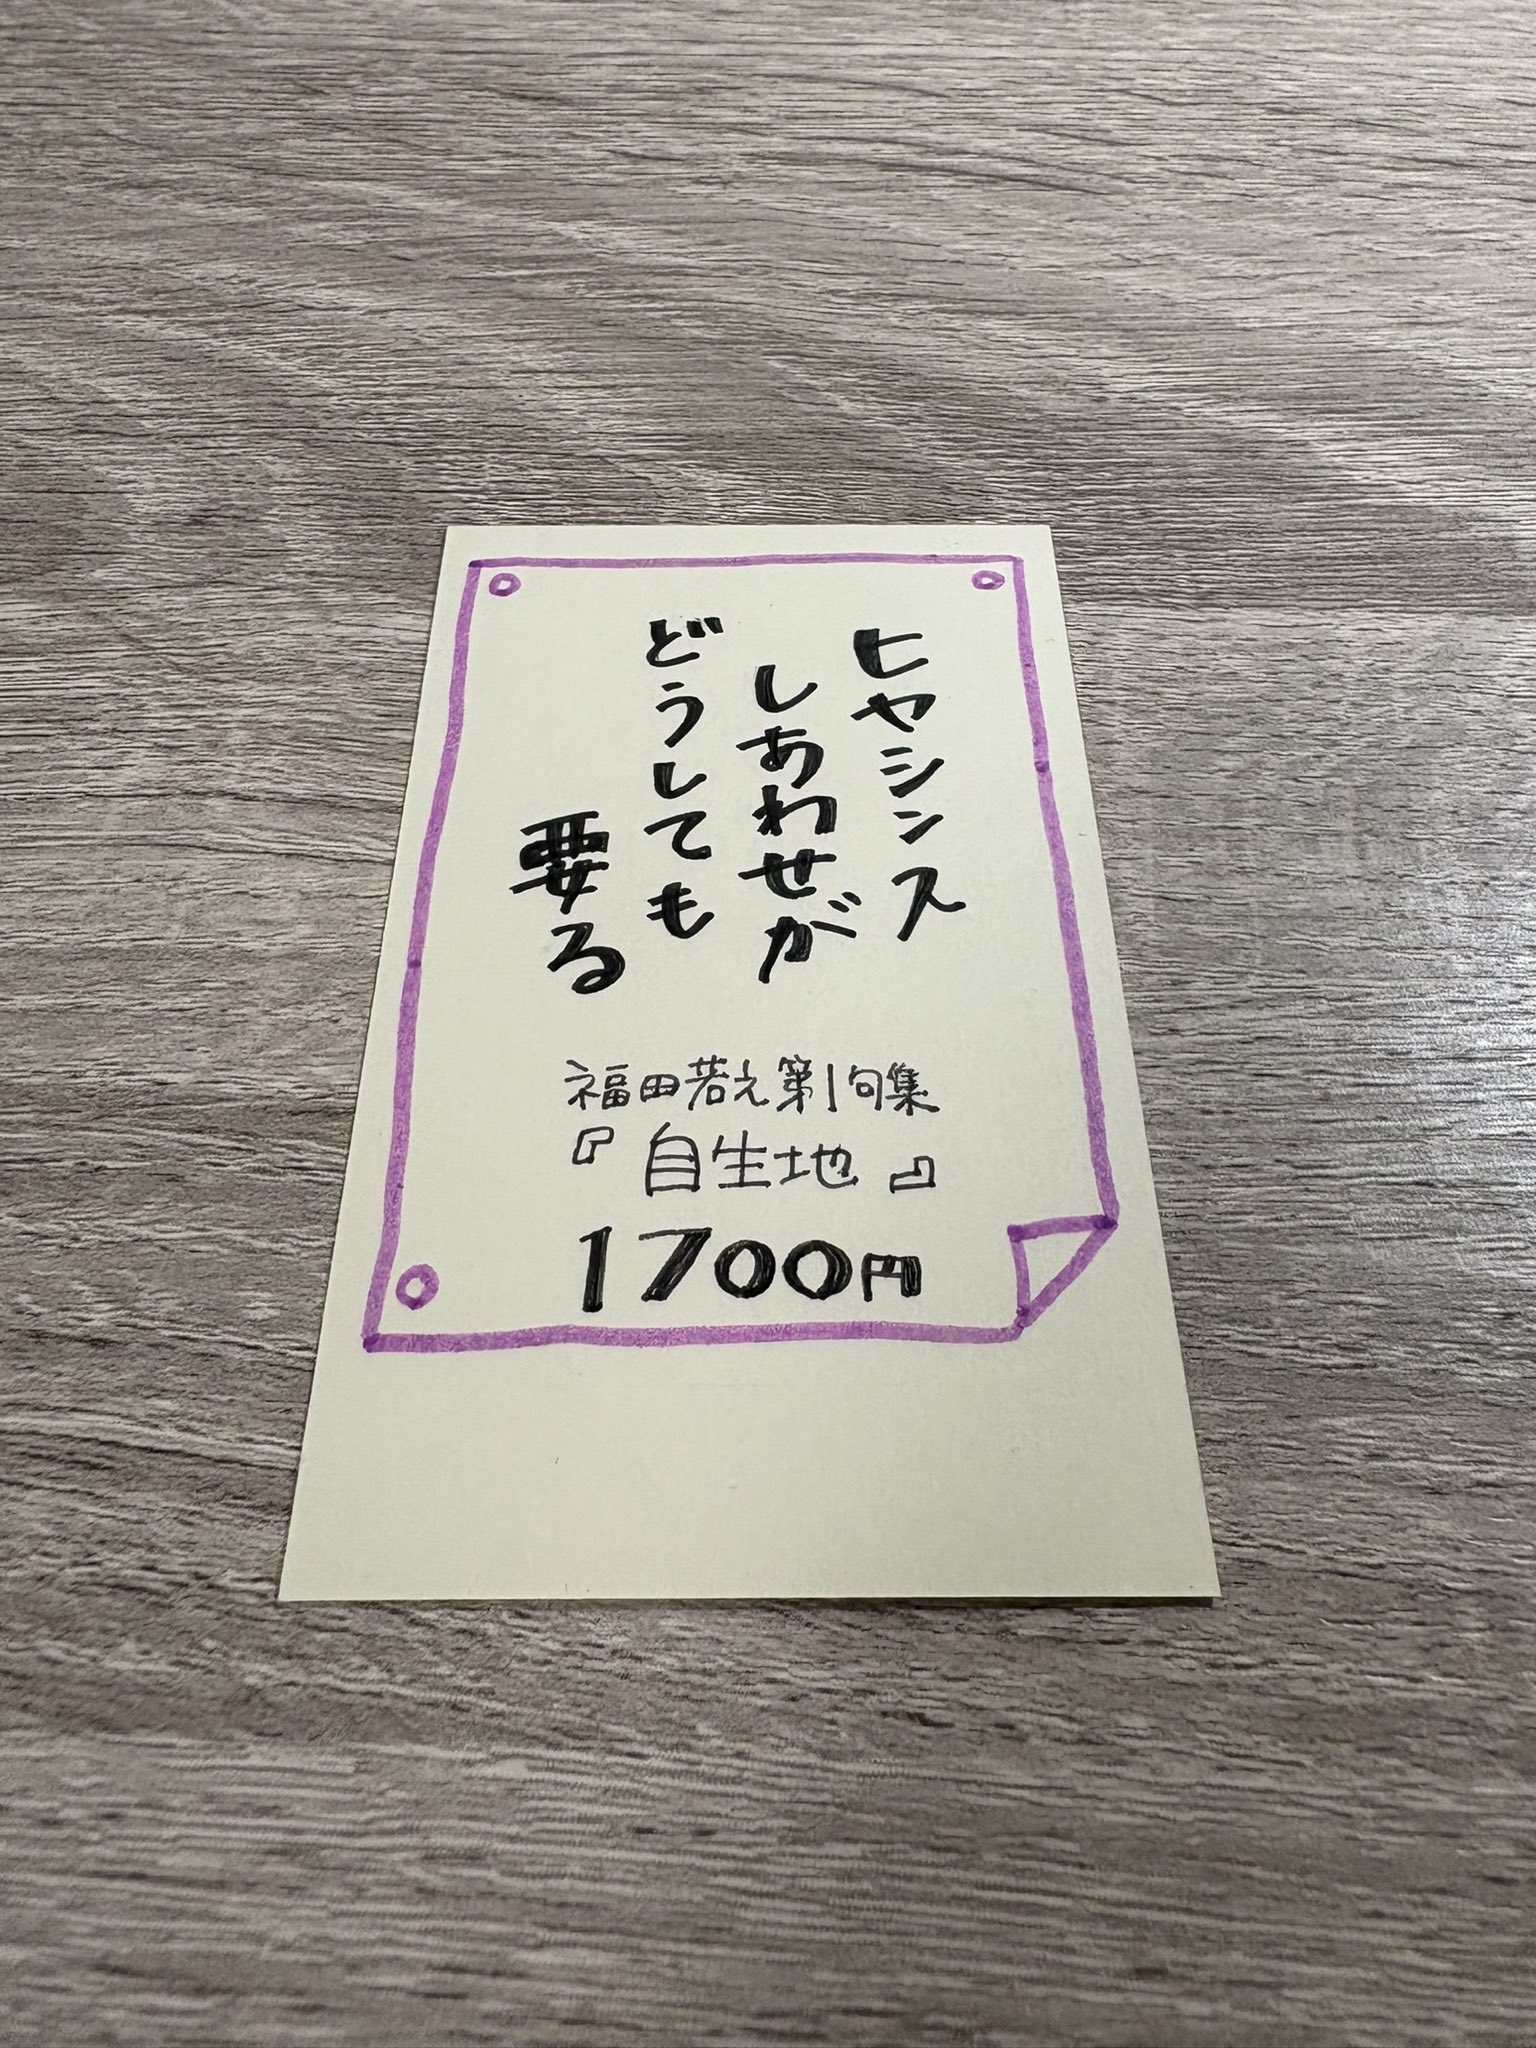 ヒヤシンス
しあわせが
どうしても
要る
福田若之第1句集
『自生地』
1700円